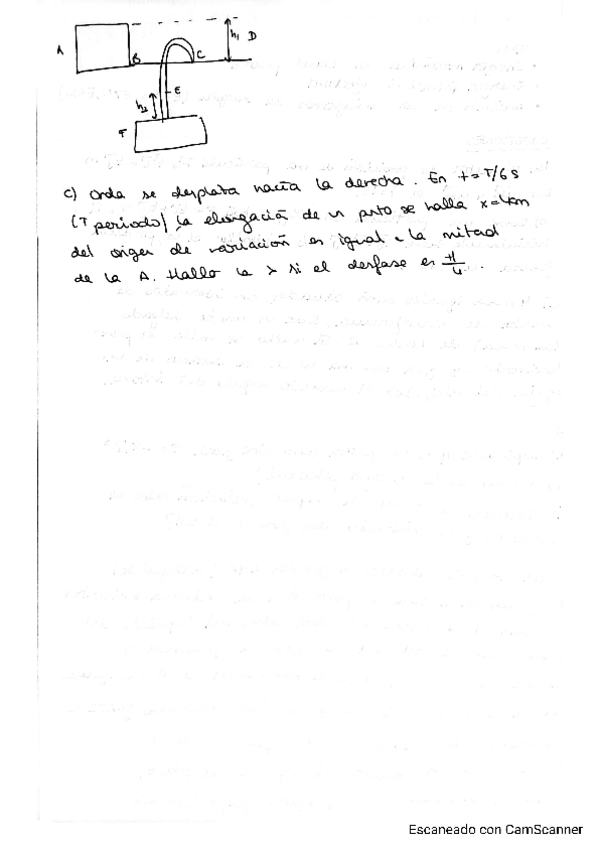 A
B
C
h1
D
E
h2
F
c) Onda se desplaza hacia la derecha. En t = T/6 s
(T periodo) la elongación de un pnto se halla x=4cm
del origen de variación es igual a la mitad
de la A. Hallo la λ si el desfase es π/4.
Escaneado con CamScanner